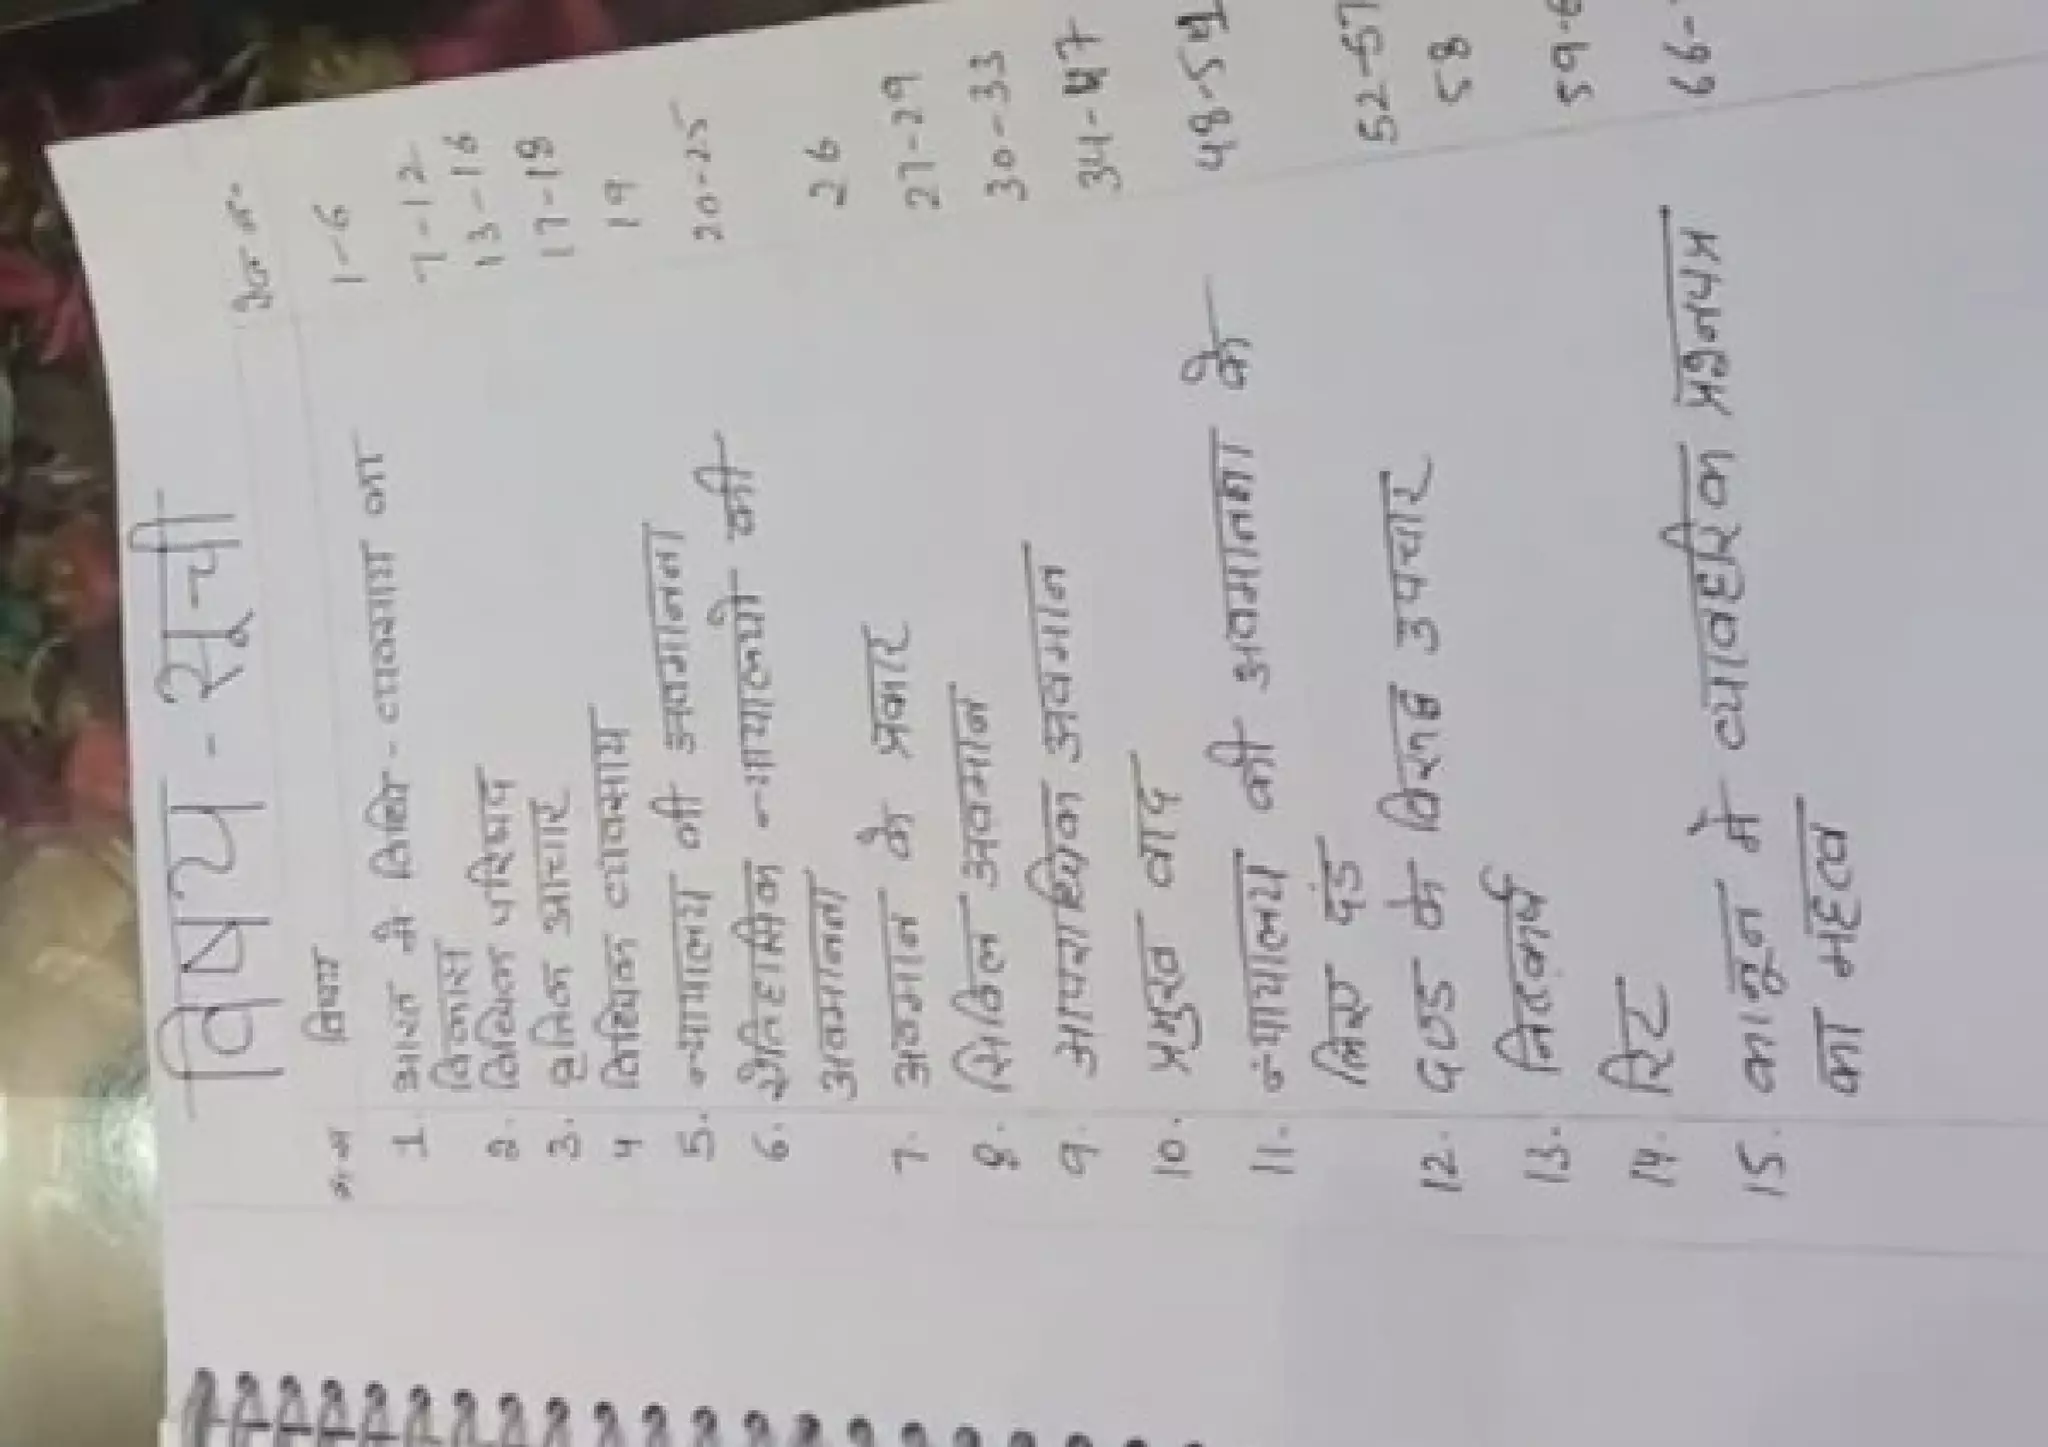 विषय - सूची
क्र.स विषय पेज न.
1. भारत मे विधि - व्यवसाय का 1-6
विकास
2. विधिक परिषद 7-12
3. वृतिक आचार 13-16
4 विधिक व्यवसाय 17-18
5. न्यायालय की अवमानना 19
6. ऐतिहासिक न्यायालयो की 20-25
अवमानना
7. अवमान के प्रकार 26
8. सिविल अवमान 27-29
9. आपराधिक अवमान 30-33
10. प्रमुख वाद 34-47
11. न्यायालय की अवमानना के 48-51
लिए दंड
12. दण्ड के विरुद्ध उपचार 52-57
13. निष्कर्ष 58
14. रिट 59-6
15. कानून मे व्यावहारिक प्रश्नपत्र 66-
का महत्व